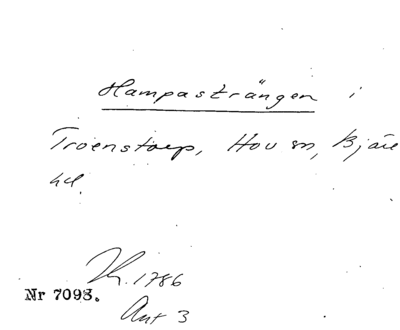 Hampasträngen i
Troenstorp, Hov sn, Bjäre
hd.
Kh. 1786
Nr 7093.
Ant 3